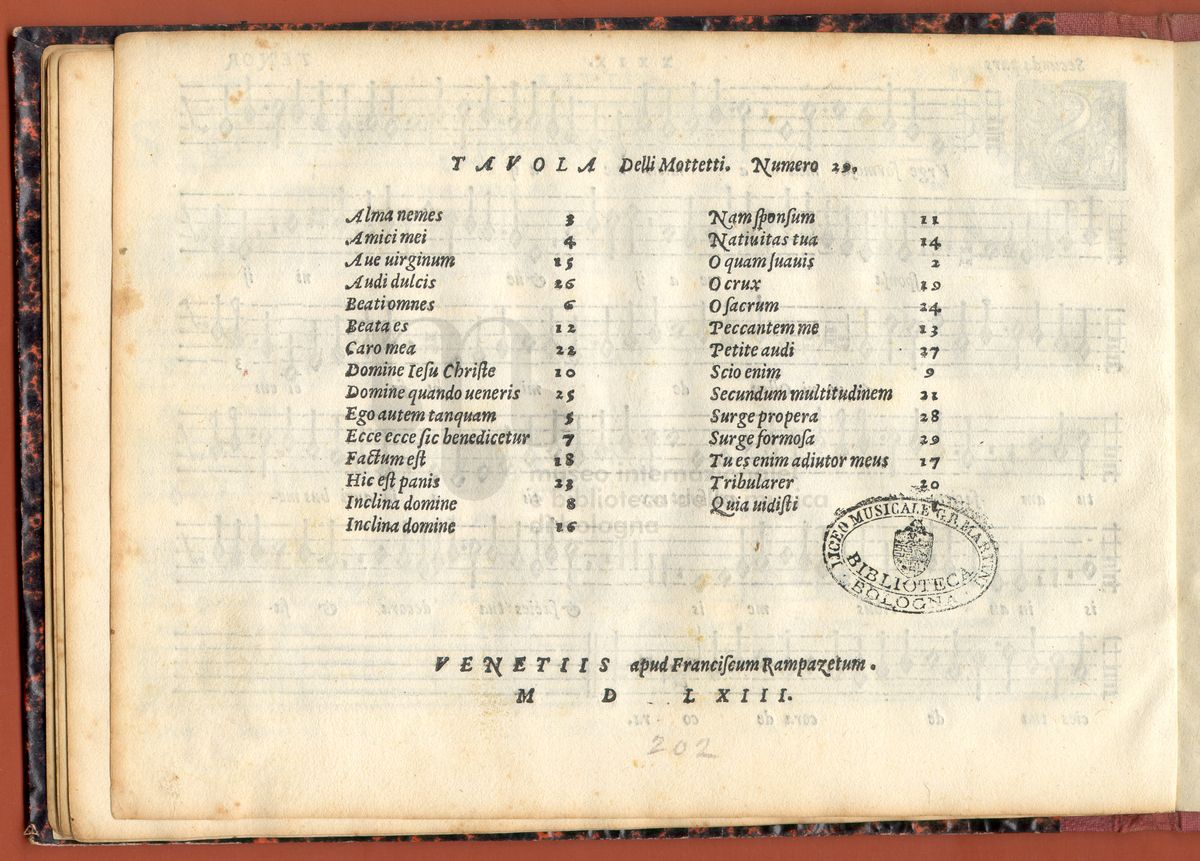 TAVOLA Delli Mottetti. Numero 29.
Alma nemes 3
Amici mei 4
Aue uirginum 15
Audi dulcis 26
Beati omnes 6
Beata es 12
Caro mea 22
Domine Iesu Chriſte 10
Domine quando ueneris 25
Ego autem tanquam 5
Ecce ecce ſic benedicetur 7
Factum eſt 18
Hic eſt panis 23
Inclina domine 8
Inclina domine 16
Nam ſponſum 11
Natiuitas tua 14
O quam ſuauis 2
O crux 19
O ſacrum 24
Peccantem me 13
Petite audi 27
Scio enim 9
Secundum multitudinem 21
Surge propera 28
Surge formoſa 29
Tu es enim adiutor meus 17
Tribularer 20
Quia uidiſti
LICEO MUSICALE G.B. MARTINI
BIBLIOTECA
BOLOGNA
museo internazionale
e biblioteca della musica
di bologna
VENETIIS apud Franciſcum Rampazetum.
M D LXIII.
202